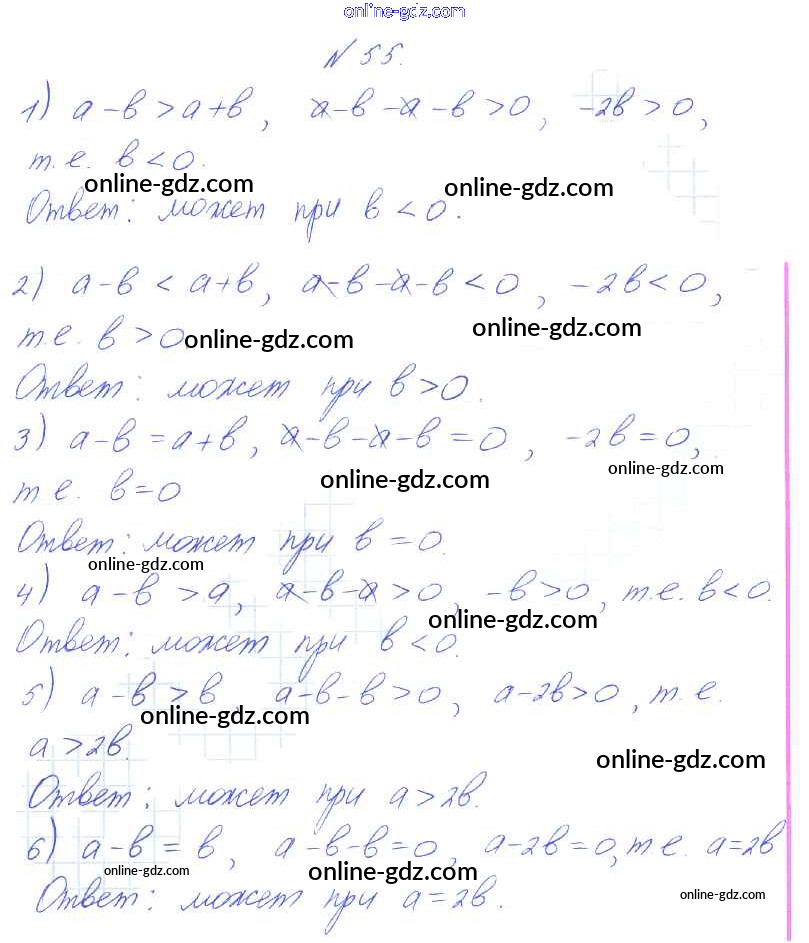 online-gdz.com
N 55.
1) a-b>a+b, a-b-a-b>0, -2b>0,
т.е. b<0.
online-gdz.com online-gdz.com
Ответ: может при b<0.
2) a-b<a+b, a-b-a-b<0, -2b<0,
т.е. b>0 online-gdz.com online-gdz.com
Ответ: может при b>0.
3) a-b=a+b, a-b-a-b=0, -2b=0,
online-gdz.com
т.е. b=0 online-gdz.com
Ответ: может при b=0.
online-gdz.com
4) a-b>a, a-b-a>0, -b>0, т.е. b<0.
online-gdz.com
Ответ: может при b<0.
5) a-b>b, a-b-b>0, a-2b>0, т.е.
online-gdz.com
a>2b. online-gdz.com
Ответ: может при a>2b.
6) a-b=b, a-b-b=0, a-2b=0, т.е. a=2b
online-gdz.com online-gdz.com
Ответ: может при a=2b. online-gdz.com